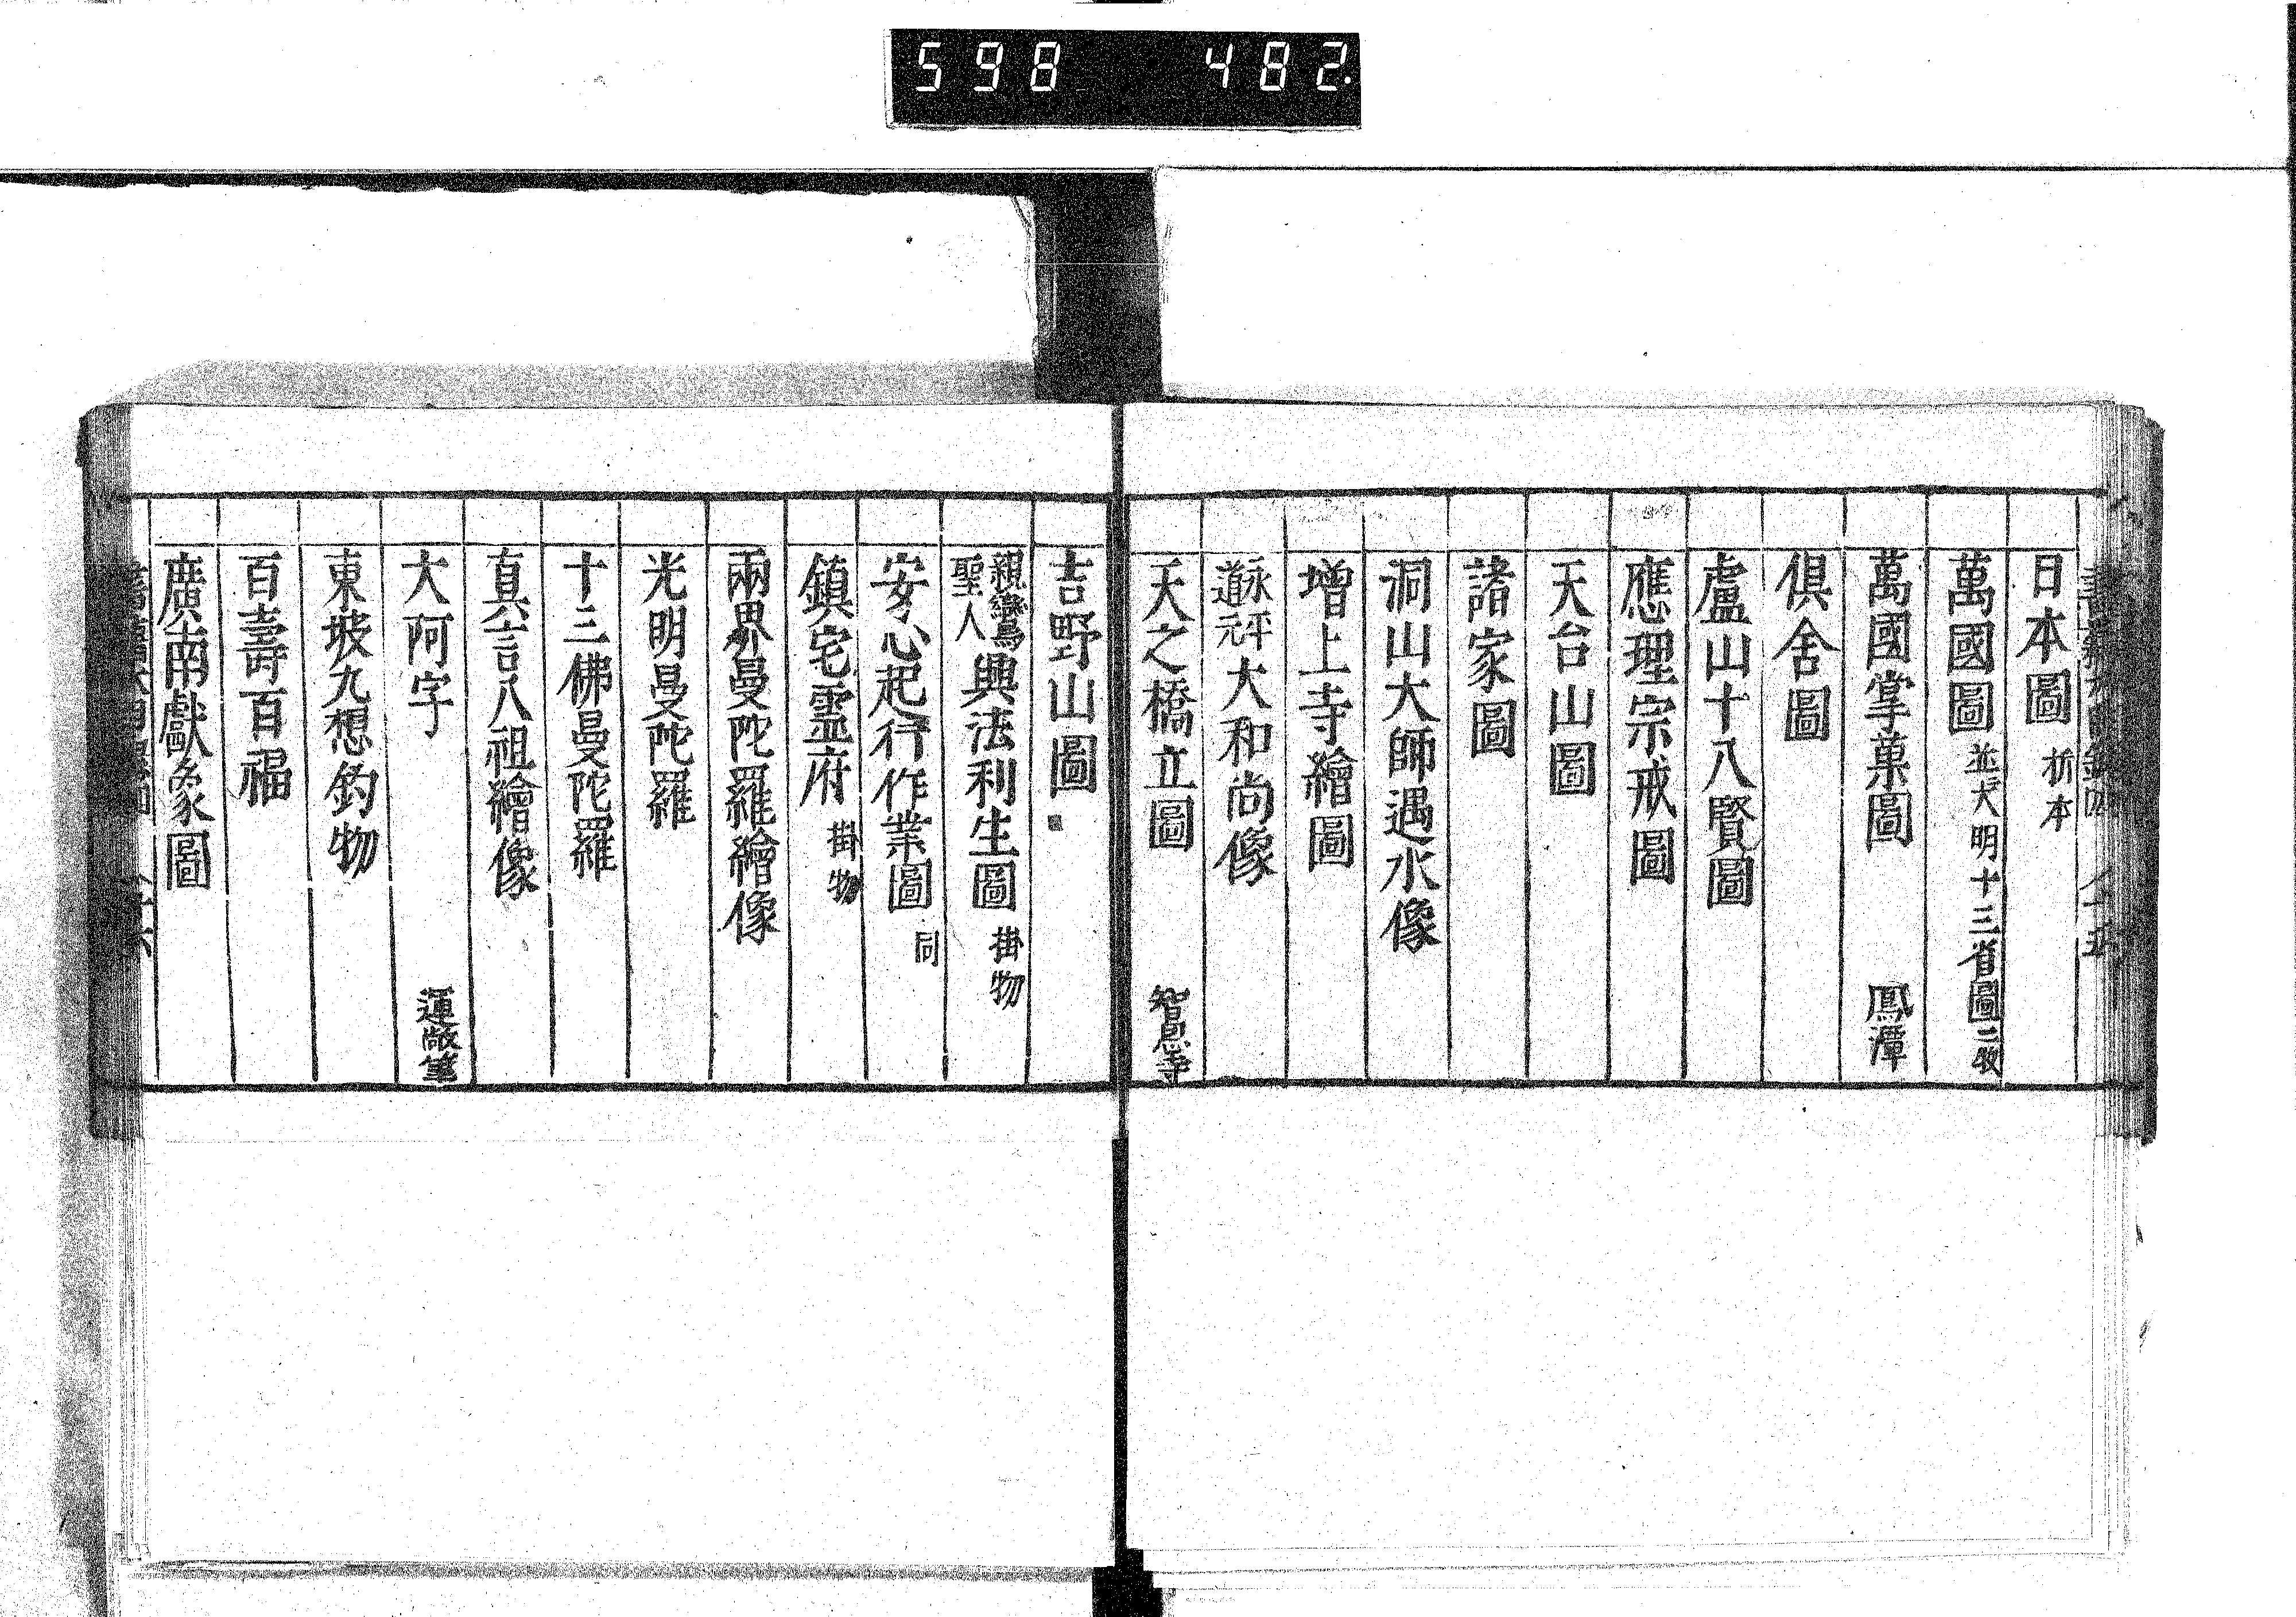 598 482.
日本圖 折本
萬國圖 並大明十三省圖二牧
萬國掌菓圖 鳳潭
俱舍圖
盧山十八賢圖
應理宗戒圖
天台山圖
諸家圖
洞山大師遇水像
增上寺繪圖
永平道元大和尚像
天之橋立圖 智恩寺
吉野山圖
親鸞聖人興法利生圖 掛物
安心起行作業圖 同
鎮宅霊府 掛物
兩界曼陀羅繪像
光明曼陀羅
十三佛曼陀羅
真言八祖繪像
大阿字 運敞筆
東坡九想釣物
百壽百福
廣南獻象圖